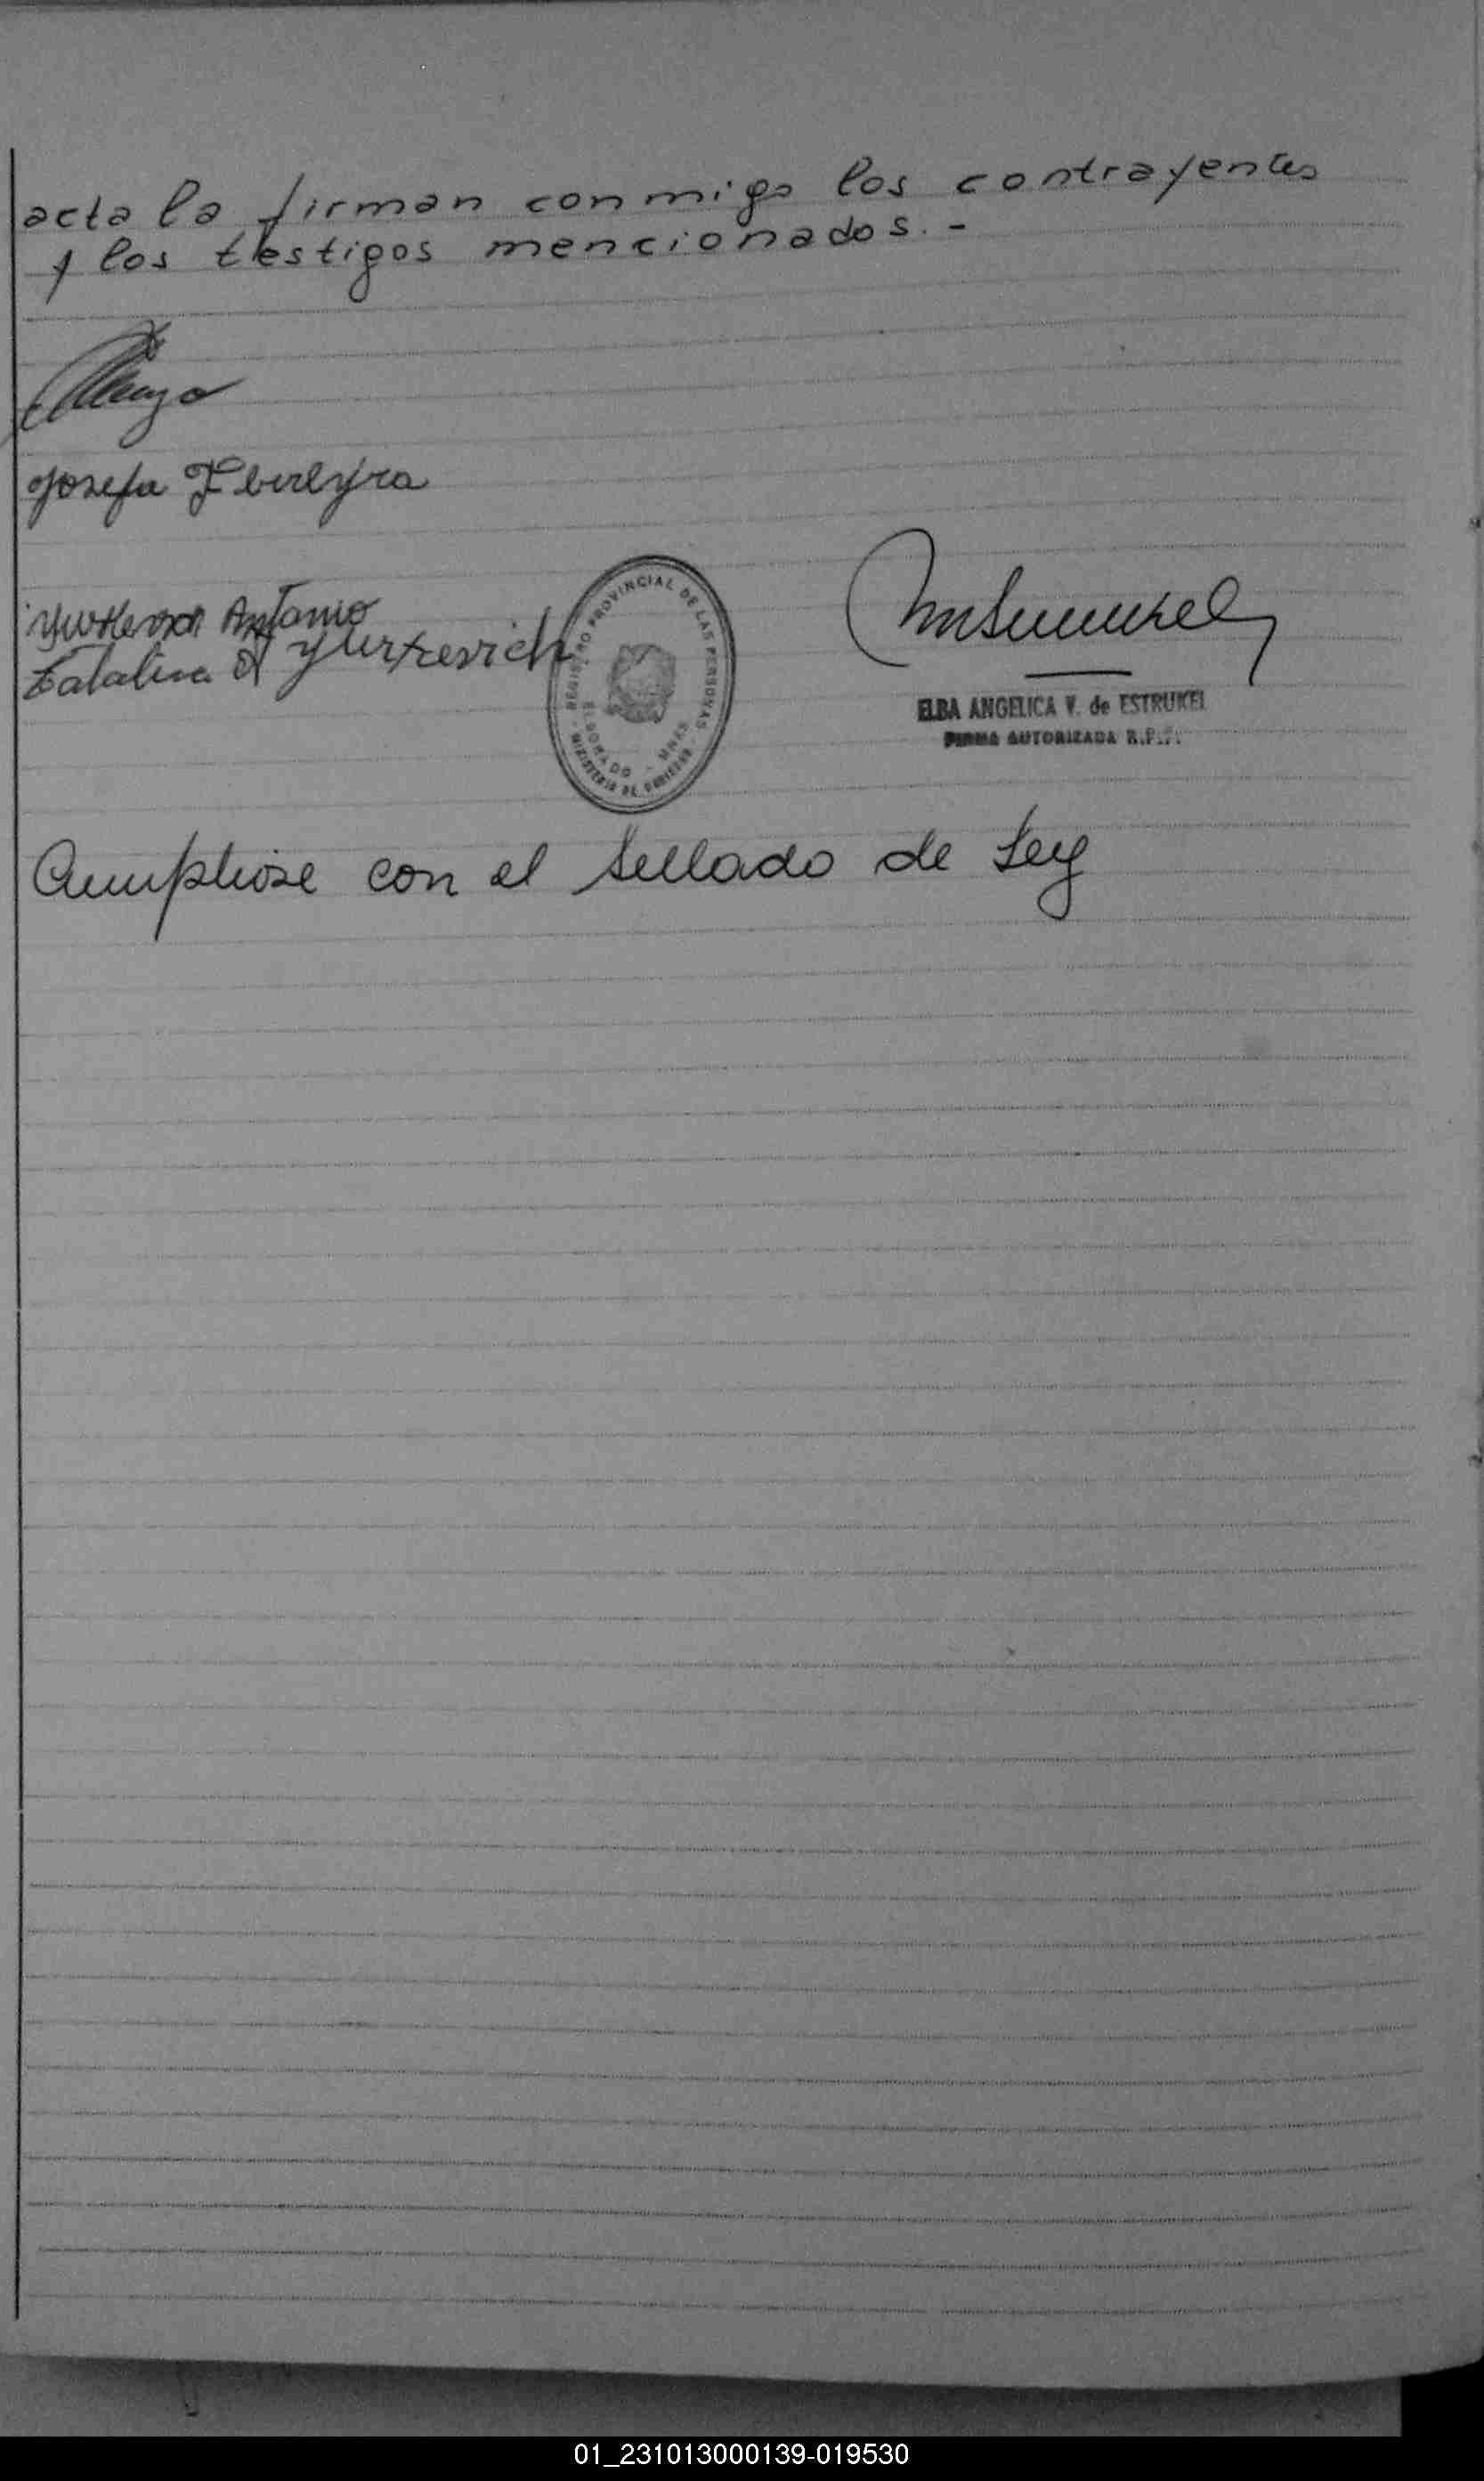 acta la firman conmigo los contrayentes
y los testigos mencionados.-
Josefa
Antonio
Catalina A Yurkevich
REGISTRO PROVINCIAL DE LAS PERSONAS
ELDORADO - MNES
MINISTERIO DE GOBIERNO
ELBA ANGELICA V. de ESTRUKEL
FIRMA AUTORIZADA R.P.P.
Cumpliose con el Sellado de Ley
01_231013000139-019530